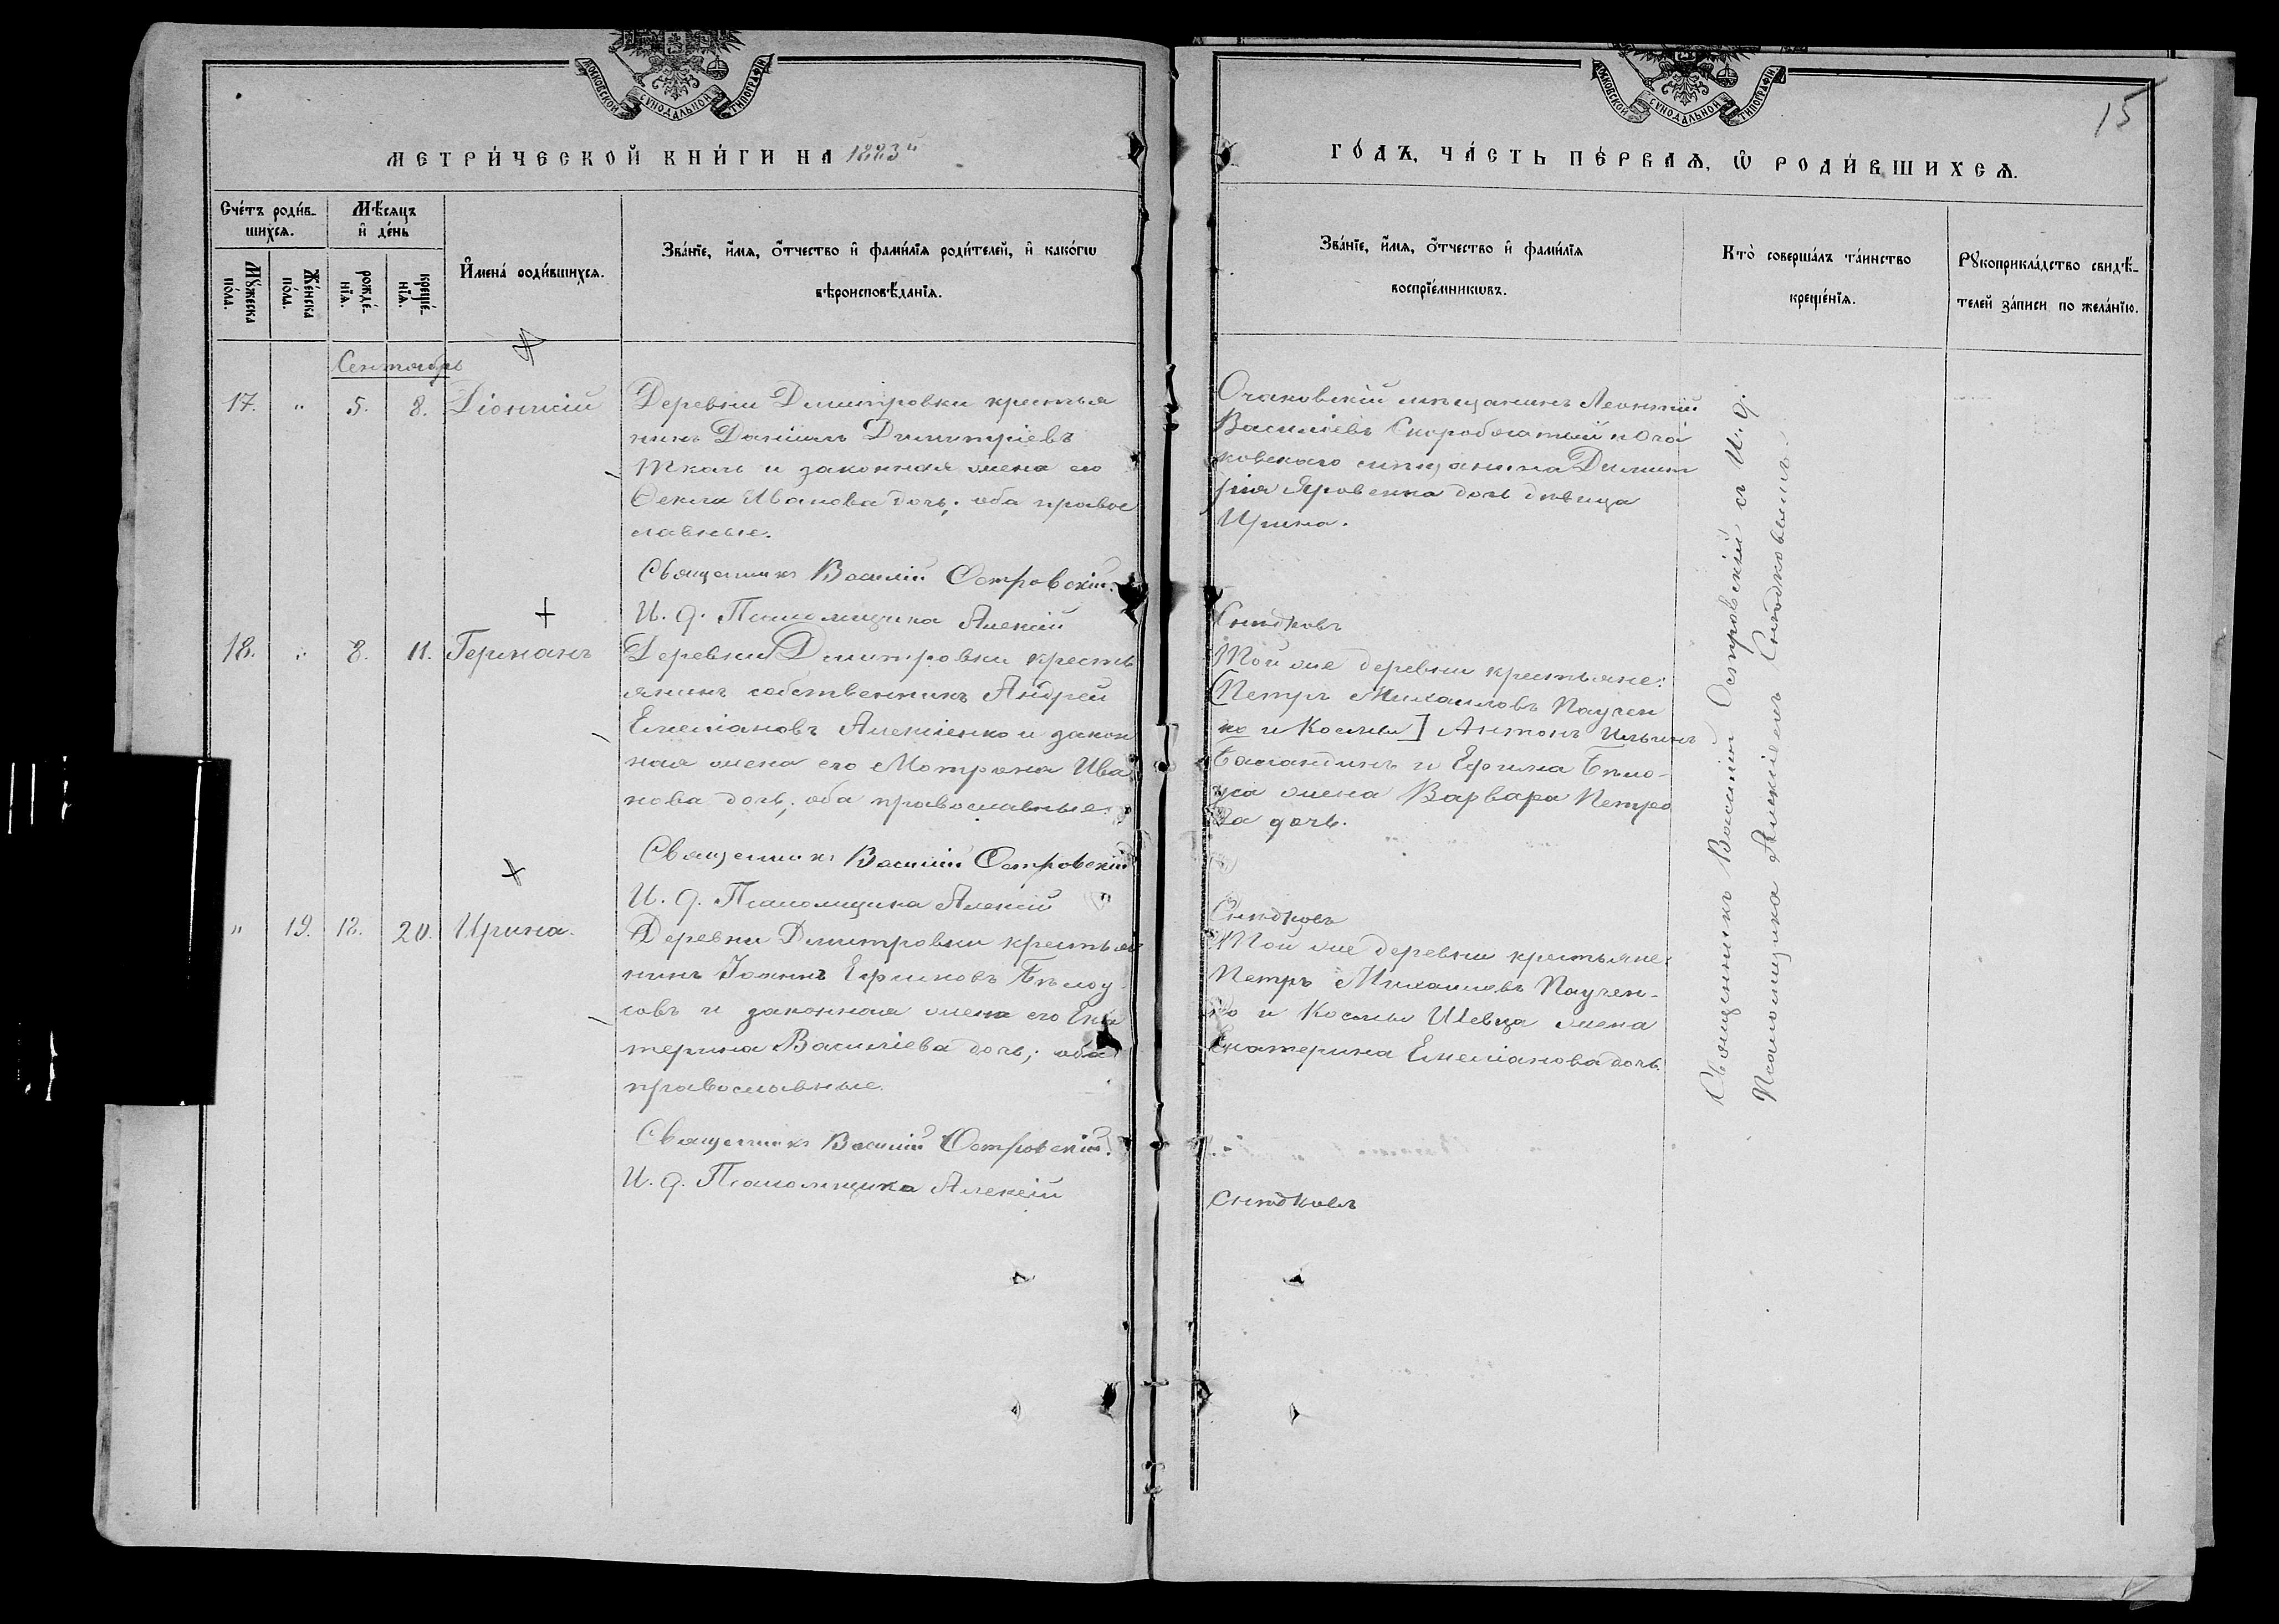 МОСКОВСКОЙ СѴНОДАЛЬНОЙ ТИПОГРАФІИ
МЕТРИ́ЧЕСКОЙ КНИ́ГИ НА 1883й
Сче́тъ роди́в-
шихся.
Мѣ́сяцъ
и҆ де́нь
Мꙋжеска
по́ла.
Же́нска
по́ла.
рожде́-
нїѧ.
креще́-
нїѧ.
И҆мена̀ роди́вшихсѧ.
Зва́нїе, и҆́мѧ, ѻ҆́тчество и҆ фами́лїѧ роди́телей, и҆ како́гѡ
вѣроисповѣ́данїѧ.
Сентябрь
17. " 5. 8. Діонисій
Деревни Димитровки крестья
нинъ Даніилъ Димитріевъ
Ткачь и законная жена его
Ѳекла Иванова дочь; оба правос
лавные.
Священникъ Василій Островскій.
И. д. Псаломщика Алексій
18. " 8. 11. Германъ
Деревни Димитровки кресть
янинъ собственникъ Андрей
Емеліановъ Алексіенко и закон
ная жена его Мотрона Ива
нова дочь; оба православные.
Священникъ Василій Островскій
И. д. Псаломщика Алексій
" 19. 18. 20. Ирина.
Деревни Димитровки крестья
нинъ Іоаннъ Ефимовъ Бѣлоу-
совъ и законная жена его Ека
терина Василіева дочь; оба
православные.
Священникъ Василій Островскій.
И. д. Псаломщика Алексій
МОСКОВСКОЙ СѴНОДАЛЬНОЙ ТИПОГРАФІИ
15
ГО́ДЪ, ЧА́СТЬ ПЕ́РВАѦ, Ѡ҆ РОДИ́ВШИХСѦ.
Зва́нїе, и҆́мѧ, ѻ҆́тчество и҆ фами́лїѧ
воспрїе́мникѡвъ.
Кто̀ соверша́лъ та́инство
креще́нїѧ.
Рꙋкоприкла́дство свидѣ́-
телей за́писи по жела́нїю.
Очаковскій мѣщанинъ Леонтій
Василіевъ Скоробогатый и Оча
ковскаго мѣщанина Димит
рія Яровенка дочь дѣвица
Ирина.
Снѣдковъ
Той же деревни крестьяне:
[Петръ Михаиловъ Паучен
ко и Космы] Антонъ Ильинъ
Баландинъ и Ефима Бѣло-
уса жена Варвара Петро
ва дочь.
Снѣдковъ
Той же деревни крестьяне:
Петръ Михаиловъ Паучен-
ко и Космы Шевца жена
Екатерина Емеліанова дочь.
Снѣдковъ
Священникъ Василій Островскій съ И. д.
Псаломщика Алексіемъ Снѣдковымъ.